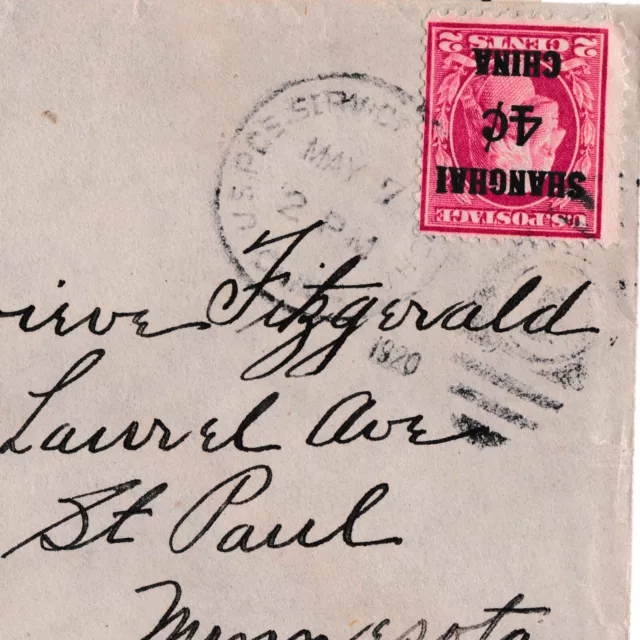 2 CENTS 2
SHANGHAI
4¢
CHINA
U.S. POSTAGE
U.S. POS. SERVICE
MAY
2 PM
1920
Fitzgerald
Laurel Ave
St Paul
Minnesota